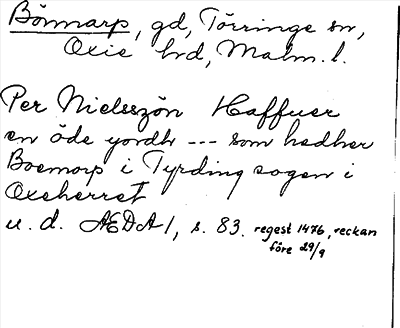 Bönmarp, gd, Törringe sn,
Oxie hrd, Malm. l.
Per Nielsszön Haffuer
en öde yordh --- som hedher
Boemorp i Tyrding sogen i
Oxeherret
u. d. ÆDA 1, s. 83. regest 1476, veckan
före 29/9